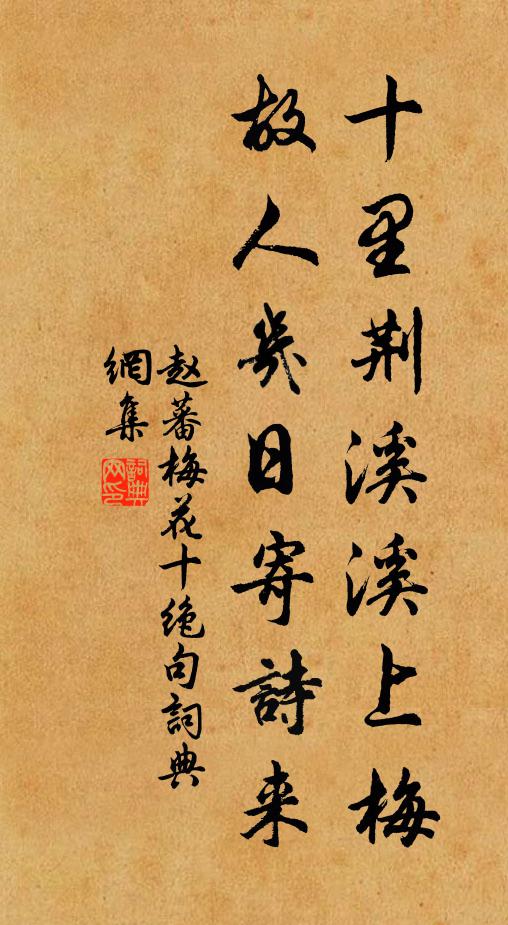 十里荆溪溪上梅
故人幾日寄詩来
赵蕃梅花十绝句詞典
網集
詞典
网印